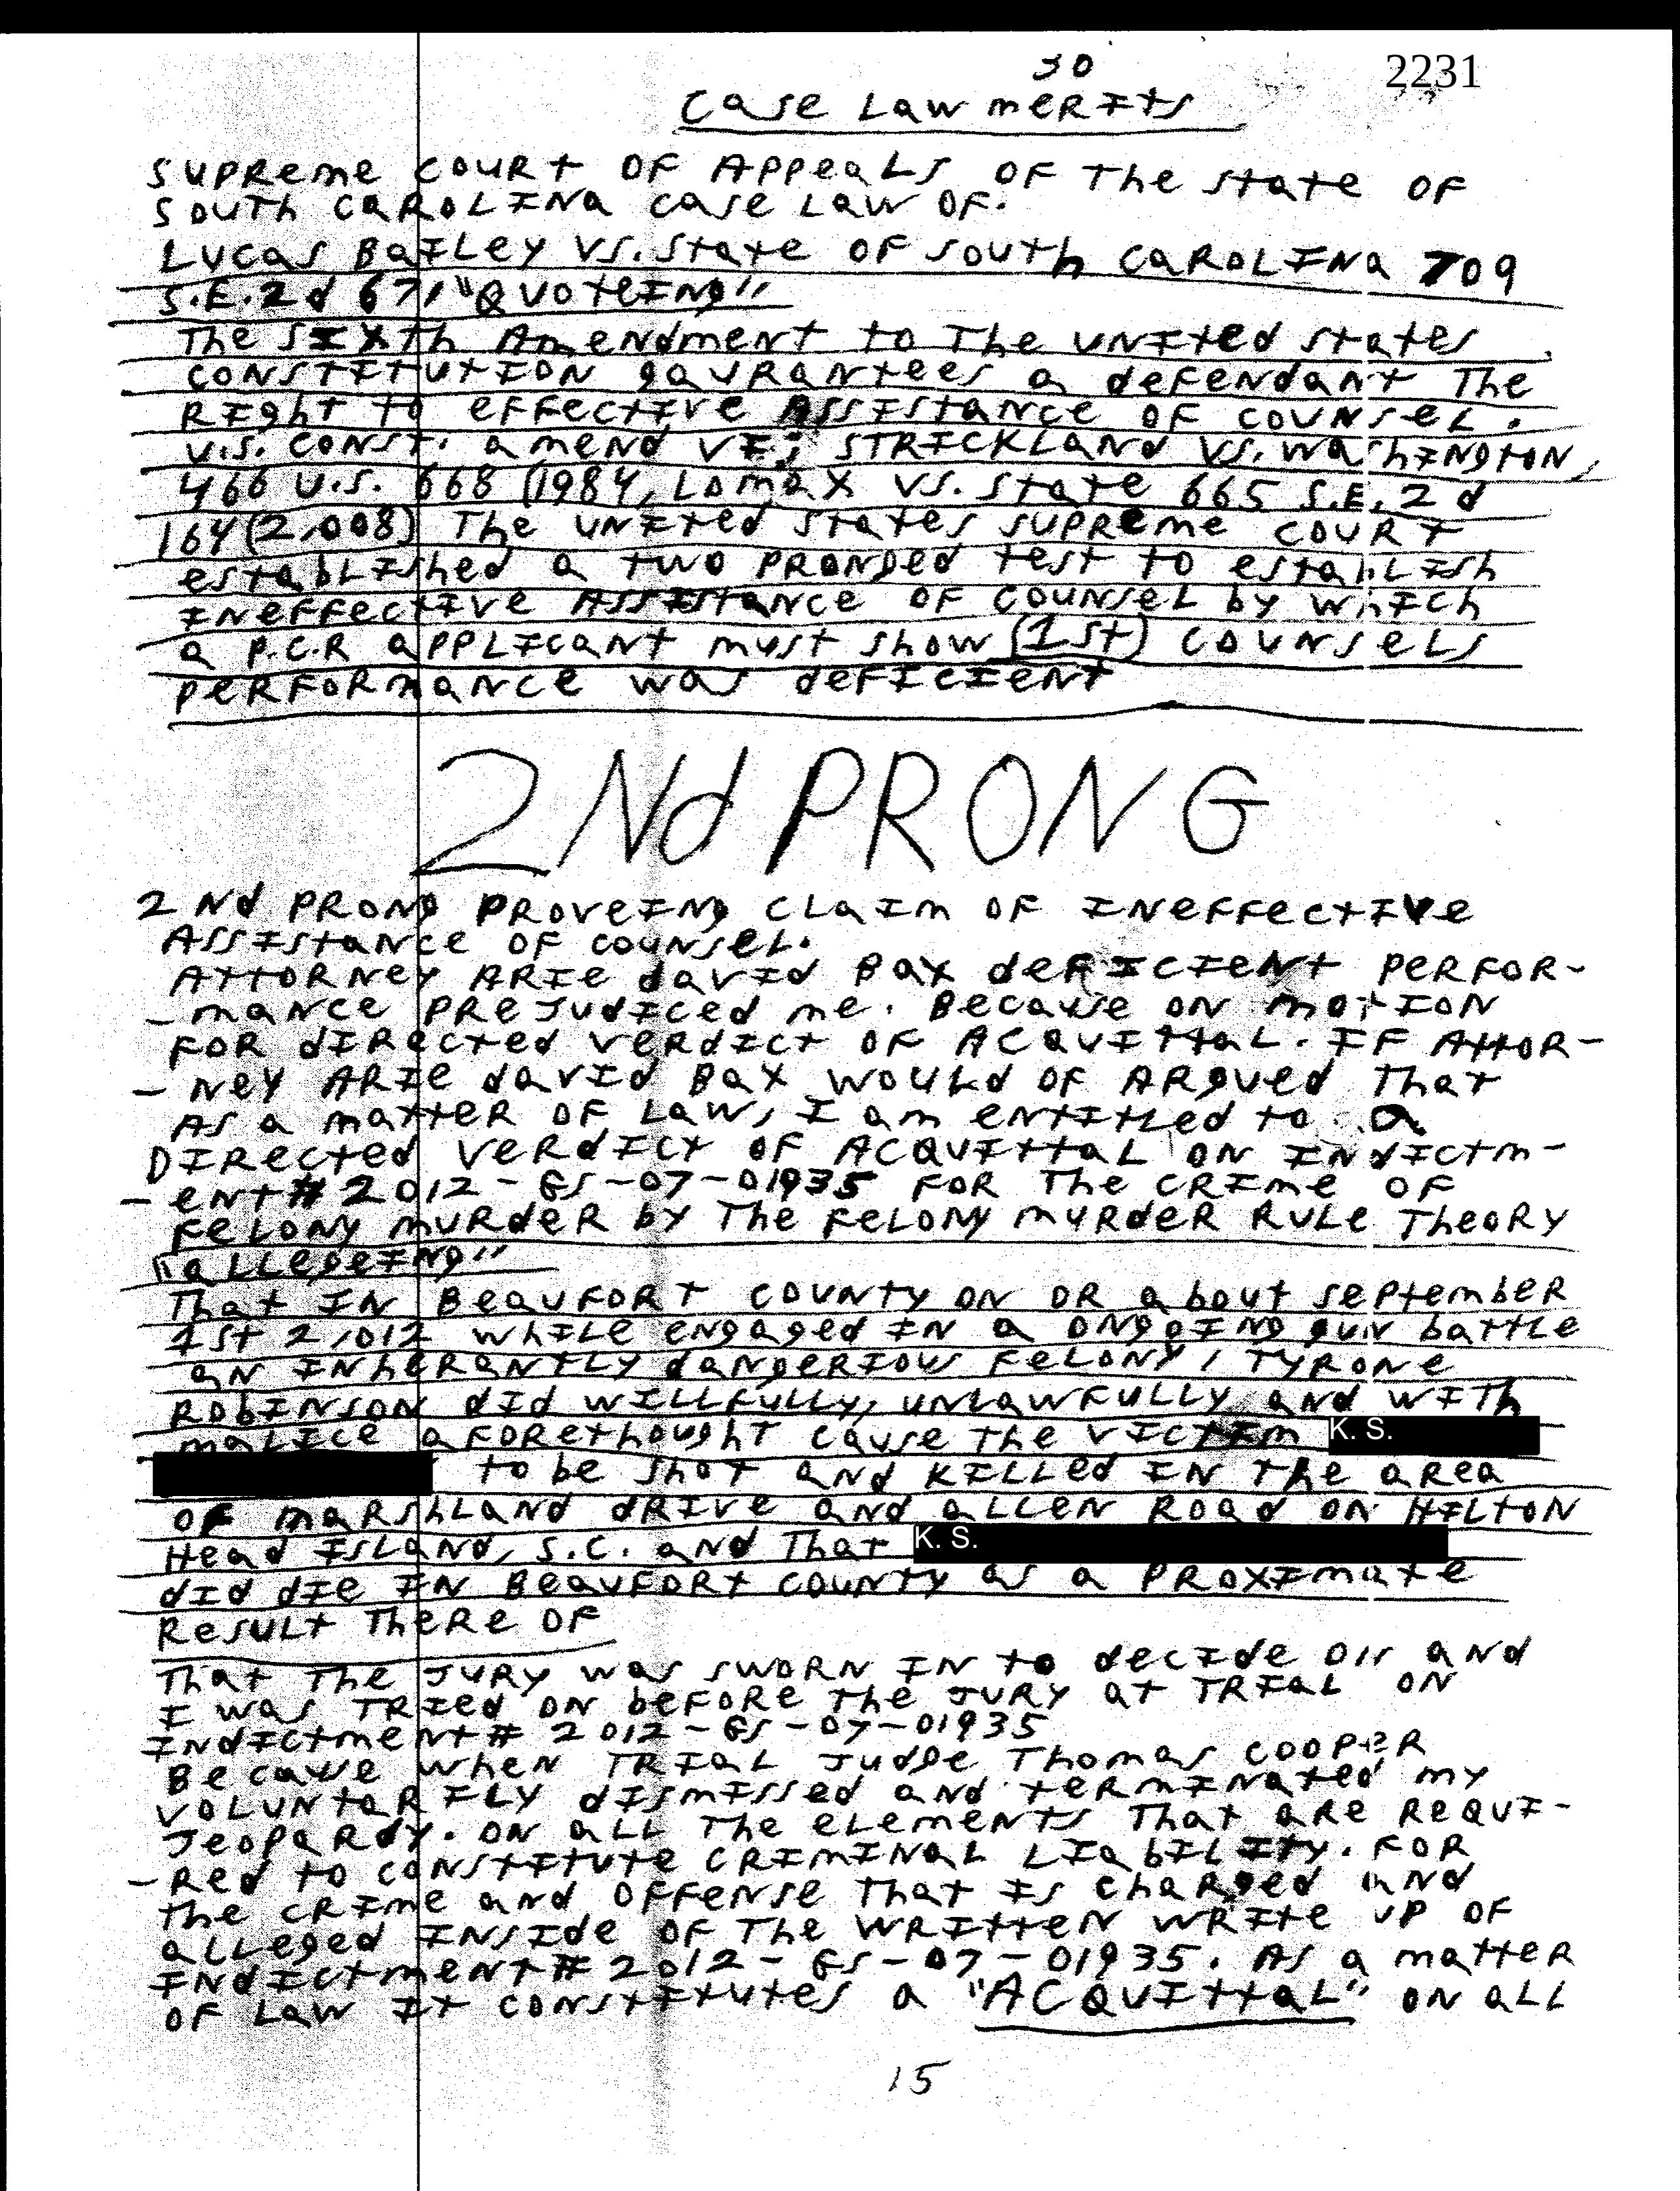 30
2231
Case Law merits
Supreme court of Appeals of the state of
South Carolina case law of.
Lucas Bailey vs. State of South Carolina 709
S.E.2d 671 "Quoteing"
The Sixth Amendment to the united states
constitution gaurantees a defendant the
right to effective Assistance of counsel.
U.S. Const. amend VI; STRICKLAND VS. Washington,
466 U.S. 668 (1984, Lomax vs. State 665 S.E. 2d
164 (2,008) The united states supreme court
established a two pronged test to establish
ineffective Assistance of counsel by which
a P.C.R applicant must show (1st) counsels
performance was deficient
2Nd PRONG
2Nd prong proveing claim of ineffective
Assistance of counsel.
Attorney Arie david Bax deficient perfor-
-mance prejudiced me. Because on motion
for directed verdict of acquittal. If Attor-
-ney Arie david Bax would of Argued that
As a matter of law, I am entitled to a
Directed verdict of Acquittal on indictm-
-ent# 2012-GS-07-01935 for the crime of
felony murder by the felony murder rule theory
"allegeing"
That in Beaufort county on or about september
1st 2,012 while engaged in a ongoing gun battle
an inherantly dangerious felony, Tyrone
Robinson did willfully, unlawfully and with
malice aforethought cause the victim K. S.
to be shot and killed in the area
of marshland drive and allen road on Hilton
Head Island, S.C. and that K. S.
did die in Beaufort county as a proximate
Result there of
That the jury was sworn in to decide on and
I was tried on before the jury at trial on
indictment# 2012-GS-07-01935
Because when trial judge Thomas Cooper
voluntarily dismissed and terminated my
jeopardy. on all the elements that are requi-
-red to constitute criminal liability. for
the crime and offense that is charged and
alleged inside of the written write up of
indictment# 2012-GS-07-01935. As a matter
of law it constitutes a "ACQUITTAL" on all
15